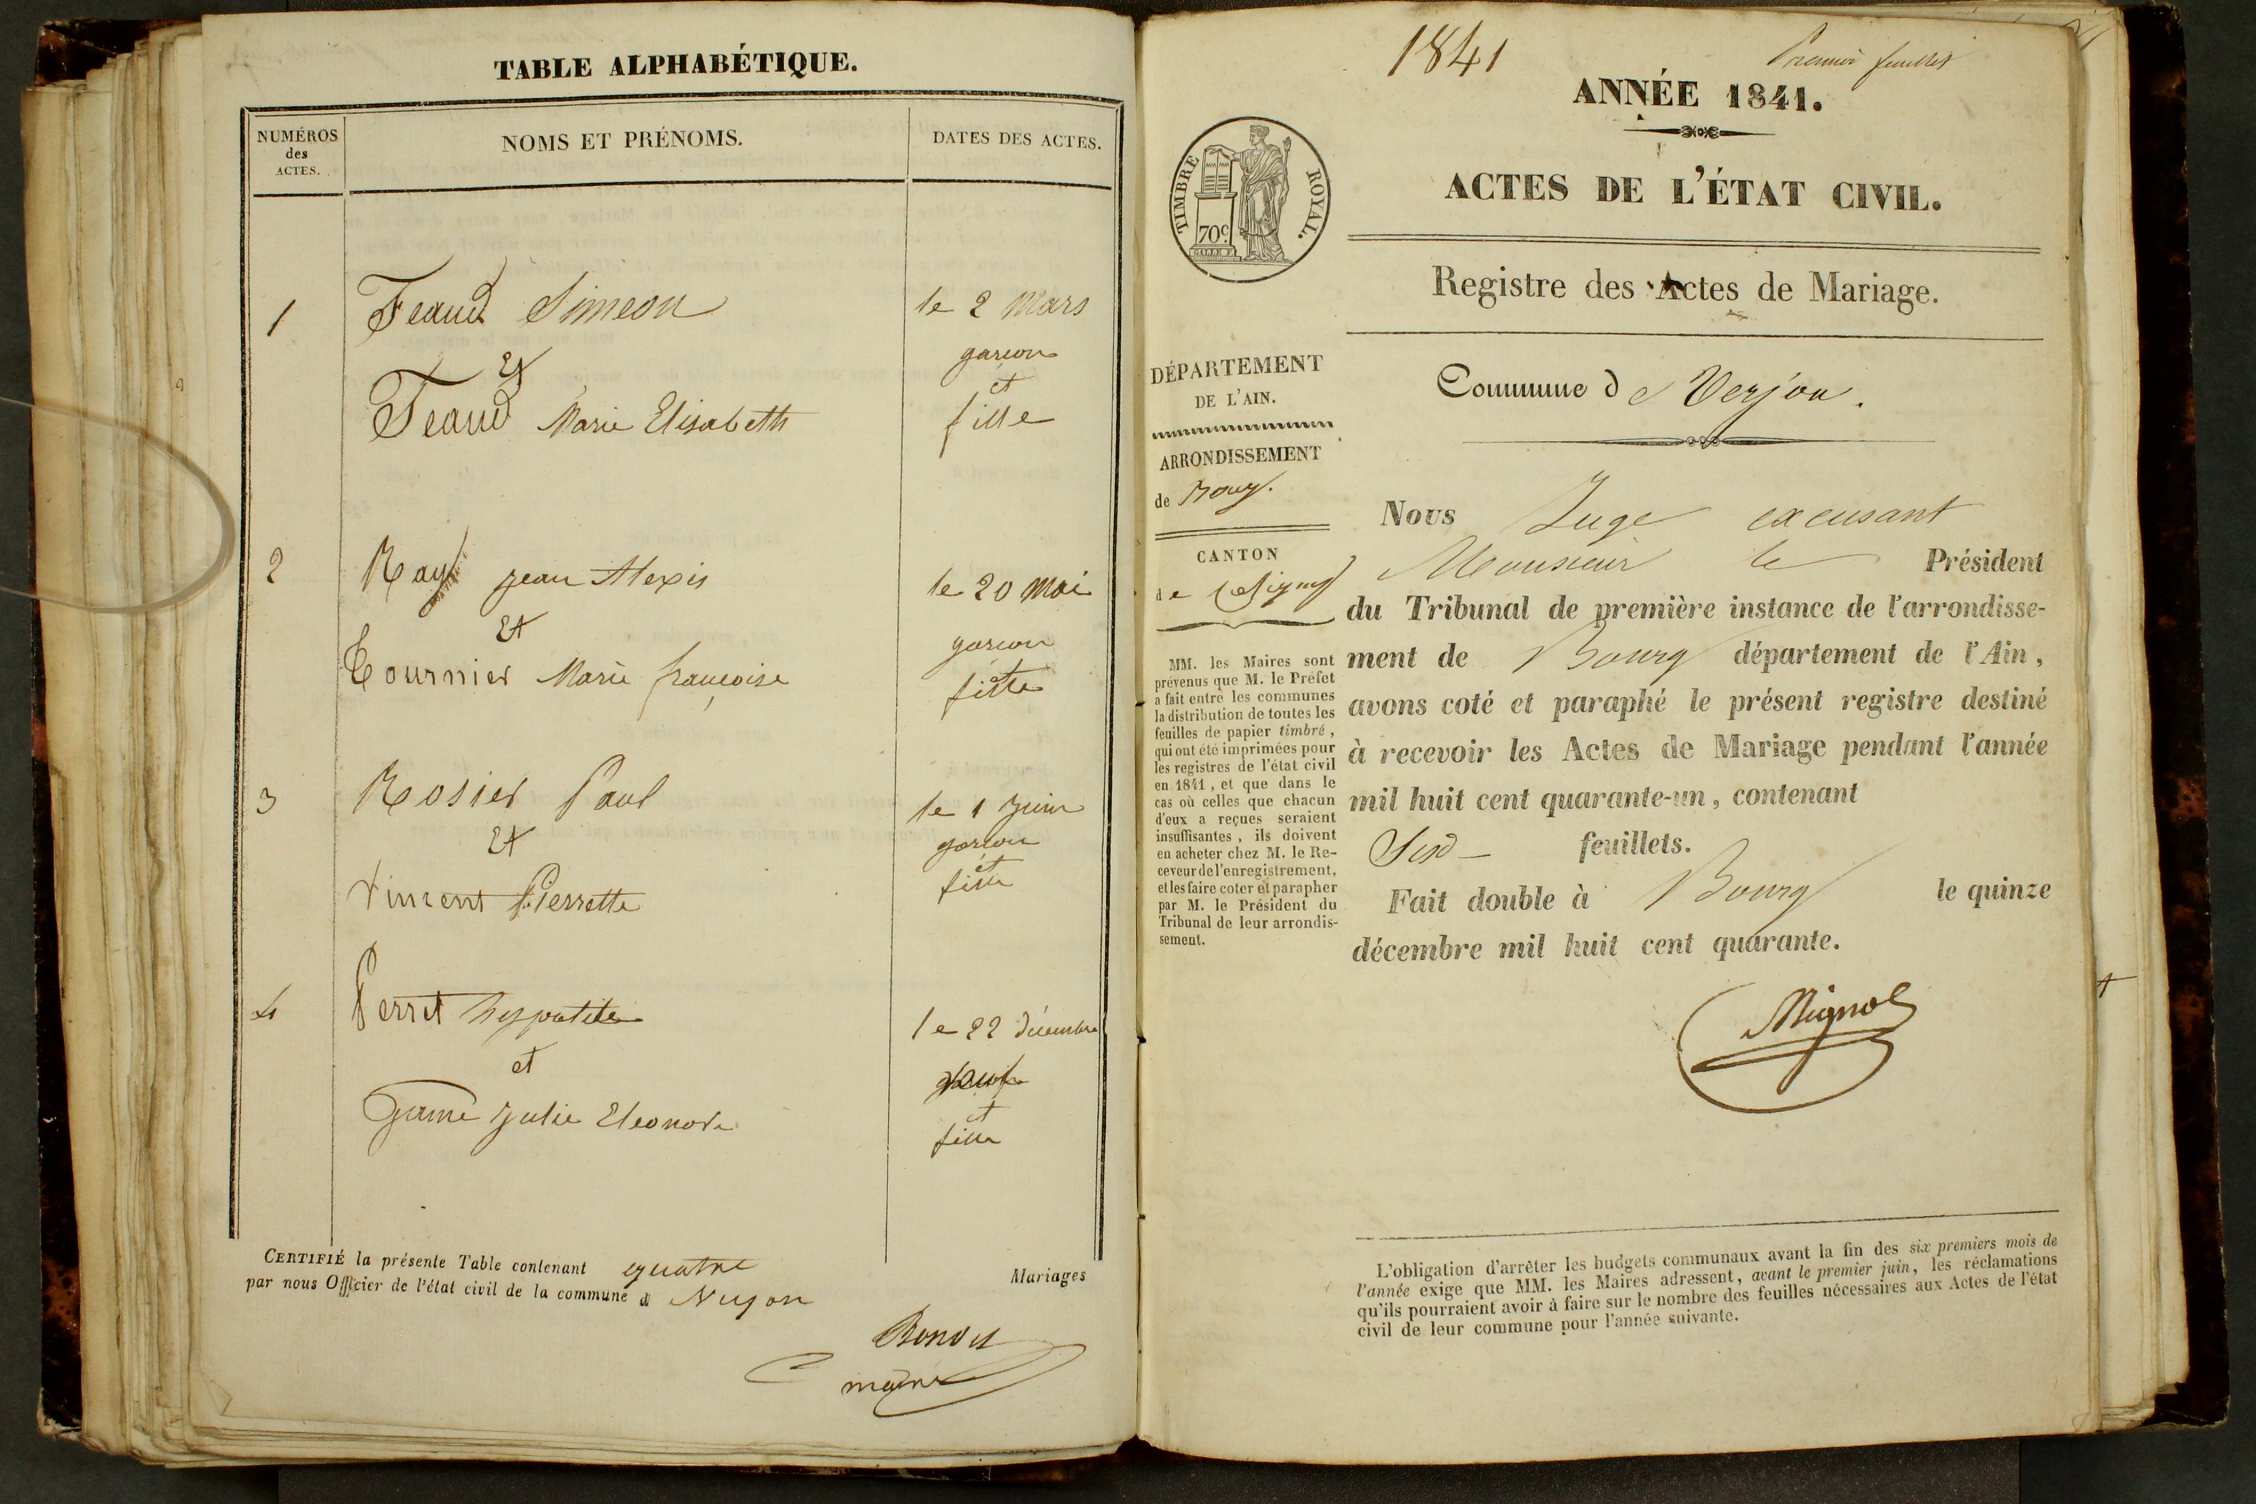 TABLE ALPHABÉTIQUE.
NUMÉROS
des
ACTES.
NOMS ET PRÉNOMS.
DATES DES ACTES.
1
Feaud Simeon
le 2 Mars
garcon
Et
et
Feaud Marie Elisabeth
fille
2
Ray Jean Alexis
le 20 Mai
Et
garcon
Tournier Marie françoise
fille
3
Rosier Paul
le 1 Juin
Et
garcon
et
Vincent Pierrette
fille
4
Perret hyppolite
le 22 décembre
et
et
Jame Julie Eleonore
fille
CERTIFIÉ la présente Table contenant quatre Mariages
par nous Officier de l'état civil de la commune d Verjon
maire
1841
Premier feuillet
ANNÉE 1841.
TIMBRE ROYAL.
70c
ACTES DE L'ÉTAT CIVIL.
Registre des Actes de Mariage.
Commune de Verjon.
DÉPARTEMENT
DE L'AIN.
ARRONDISSEMENT
de Bourg.
CANTON
de Coligny
MM. les Maires sont
prévenus que M. le Préfet
a fait entre les communes
la distribution de toutes les
feuilles de papier timbré,
qui ont été imprimées pour
les registres de l'état civil
en 1841, et que dans le
cas où celles que chacun
d'eux a reçues seraient
insuffisantes, ils doivent
en acheter chez M. le Re-
ceveur de l'enregistrement,
et les faire coter et parapher
par M. le Président du
Tribunal de leur arrondis-
sement.
Nous Juge excusant
Monsieur le Président
du Tribunal de première instance de l'arrondisse-
ment de Bourg département de l'Ain,
avons coté et paraphé le présent registre destiné
à recevoir les Actes de Mariage pendant l'année
mil huit cent quarante-un, contenant
feuillets.
Fait double à Bourg le quinze
décembre mil huit cent quarante.
L'obligation d'arrêter les budgets communaux avant la fin des six premiers mois de
l'année exige que MM. les Maires adressent, avant le premier juin, les réclamations
qu'ils pourraient avoir à faire sur le nombre des feuilles nécessaires aux Actes de l'état
civil de leur commune pour l'année suivante.